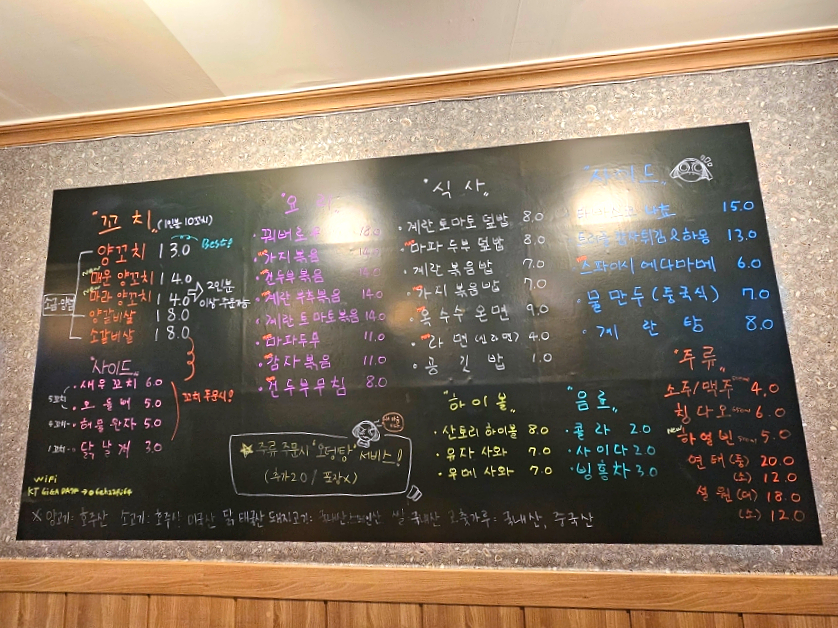 "꼬치" (1인분 10꼬치)
양꼬치 13.0 Best!
매운 양꼬치 14.0
마라 양꼬치 14.0
2인분
이상 주문가능
양갈비살 18.0
소갈비살 18.0
"사이드"
새우꼬치 6.0
5꼬치
오돌뼈 5.0
4꼬치
5.0
1꼬치
닭날개 3.0
꼬치 주문시?
WiFi
KT GiGA
"요리"
꿔바로우
가지볶음
건두부볶음 14.0
계란부추볶음 14.0
계란토마토볶음 14.0
마파두부 11.0
감자볶음 11.0
건두부무침 8.0
주류 주문시 "오뎅탕" 서비스!
(추가 2.0 / 포장x)
"식사"
계란 토마토 덮밥 8.0
마파두부 덮밥 8.0
계란볶음밥 7.0
가지볶음밥 7.0
옥수수 온면 9.0
라면(신라면) 4.0
공긴밥 1.0
"하이볼"
산토리 하이볼 8.0
유자사와 7.0
우메사와 7.0
15.0
13.0
스파이시 에다마메 6.0
물만두(중국식) 7.0
계란탕 8.0
"음료"
콜라 2.0
사이다 2.0
빙홍차 3.0
"주류"
소주/맥주 4.0
칭다오 6.0
new
하얼빈 5.0
연태(중) 20.0
(소) 12.0
설원(대) 18.0
(소) 12.0
※ 양고기: 호주산 소고기: 호주산 미국산 닭: 태국산 돼지고기: 쌀: 국내산 고춧가루: 국내산, 중국산